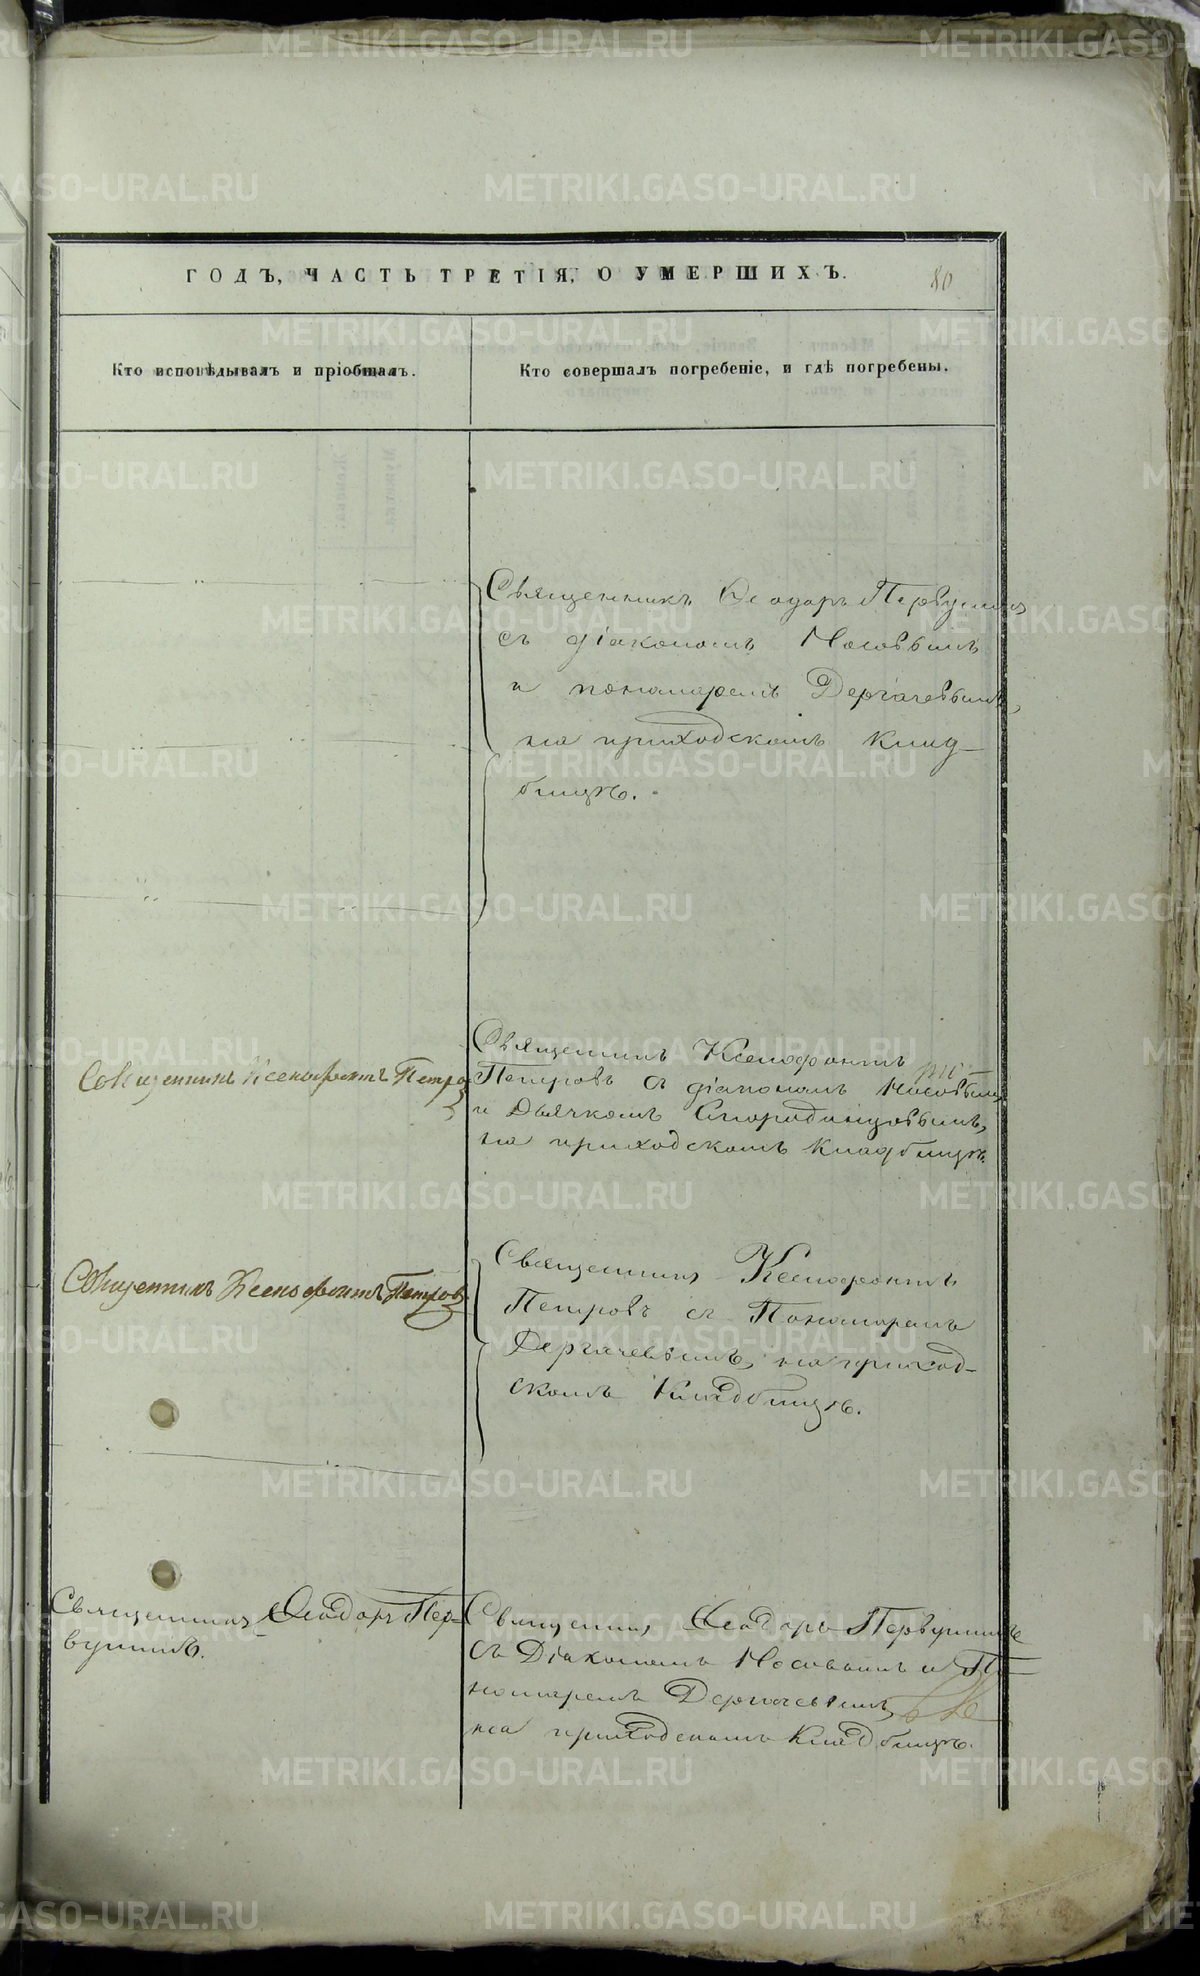 ГОДЪ, ЧАСТЬ ТРЕТІЯ, О УМЕРШИХЪ.
80
Кто исповѣдывалъ и пріобщалъ.
Кто совершалъ погребеніе, и гдѣ погребены.
Священникъ Ѳеодоръ Первушинъ
съ діакономъ Носовымъ
и пономаремъ Дергачевымъ,
на приходскомъ клад-
бищѣ.
Священникъ Ксенофонтъ Петровъ
Священникъ Ксенофонтъ
Петровъ съ діакономъ Носовымъ
и Дьячкомъ
на приходскомъ кладбищѣ.
Священникъ Ксенофонтъ Петровъ
Священникъ Ксенофонтъ
Петровъ съ Пономаремъ
Дергачевымъ, на приход-
скомъ Кладбищѣ.
Священникъ Ѳеодоръ Пер-
вушинъ.
Священникъ Ѳеодоръ Первушинъ
съ Діакономъ Носовымъ и По
номаремъ Дергачевымъ
на приходскомъ Кладбищѣ.
METRIKI.GASO-URAL.RU